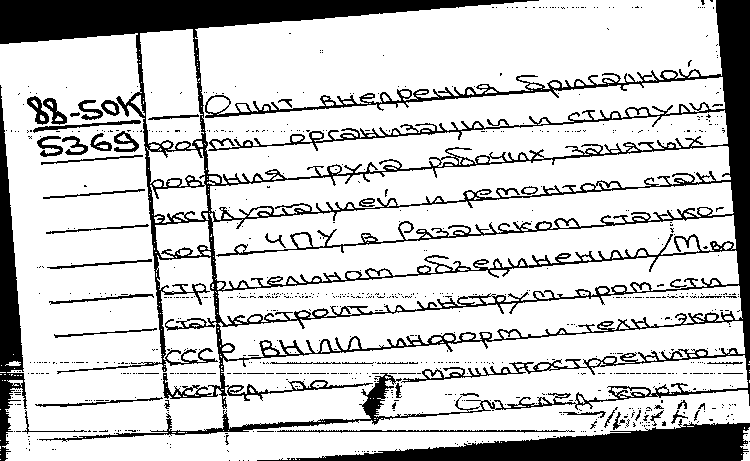 88-50К Опыт внедрения бригадной
5369 формы организации и стимули-
рования труда рабочих, занятых
эксплуатацией и ремонтом стан-
ков с ЧПУ, в Рязанском станко-
строительном объединении / М-во
станкостроит. и инструм. пром-сти
СССР, ВНИИ информ. и техн.-экон.
исслед. по машиностроению и
См. след. карт.